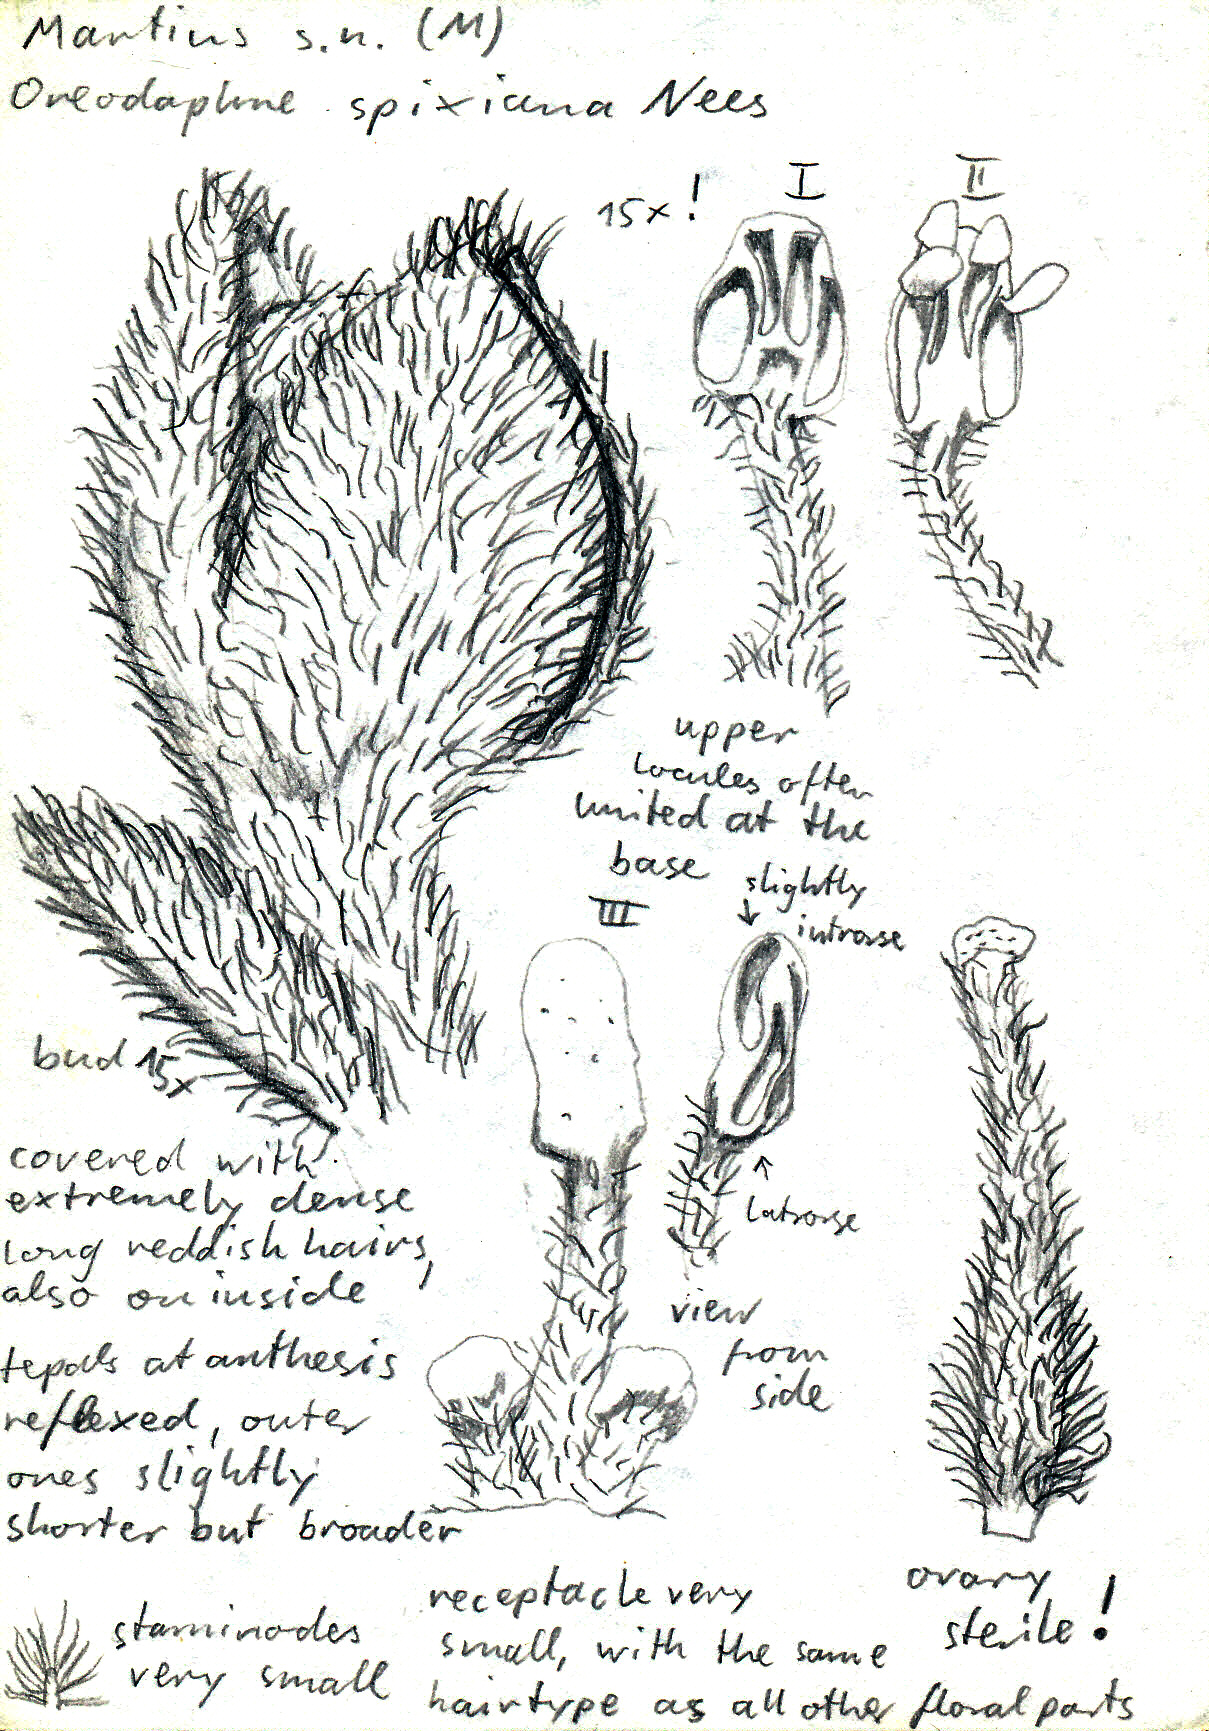 Martius s.n. (M)
Oreodaphne spixiana Nees
15x!
I
II
upper
locules often
united at the
base
III
slightly
introrse
bud 15x
latrorse
view
from
side
covered with
extremely dense
long reddish hairs,
also on inside
tepals at anthesis
reflexed, outer
ones slightly
shorter but broader
staminodes
very small
receptacle very
small, with the same
hairtype as all other floral parts
ovary
sterile!